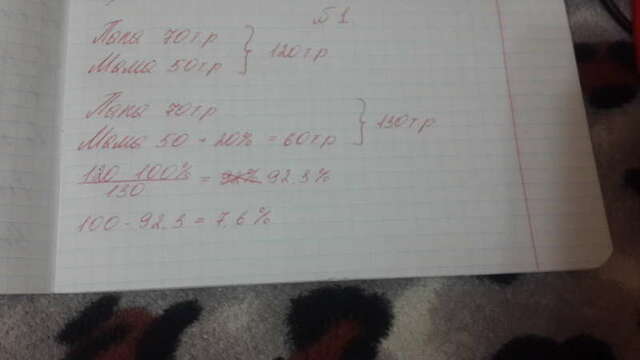 № 1.
Папа 70тр
Мама 50тр } 120тр
Папа 70тр
Мама 50 + 20% = 60тр } 130тр
120 100%
130 = 92.3%
100 - 92.3 = 7.6%